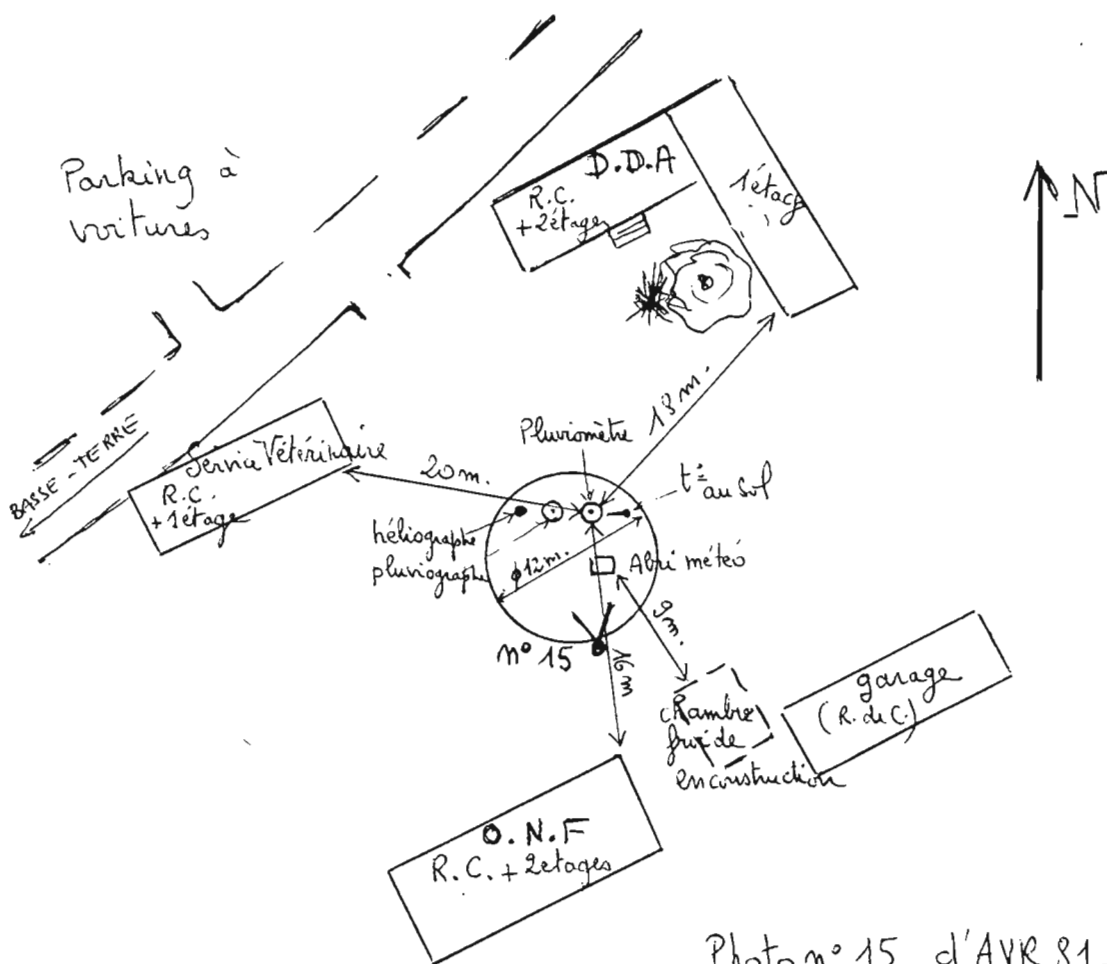 Parking à
voitures
D.D.A
R.C.
+ 2étages
1étage
N
18 m.
Pluviomètre
Service Vétérinaire
R.C.
+ 1étage
BASSE-TERRE
20 m.
t° au sol
héliographe
pluviographe
12 m.
Abri météo
9 m.
n° 15
16 m
chambre
froide
en construction
garage
(R. de C.)
O.N.F
R.C. + 2etages
Photo n° 15 d'AVR 81